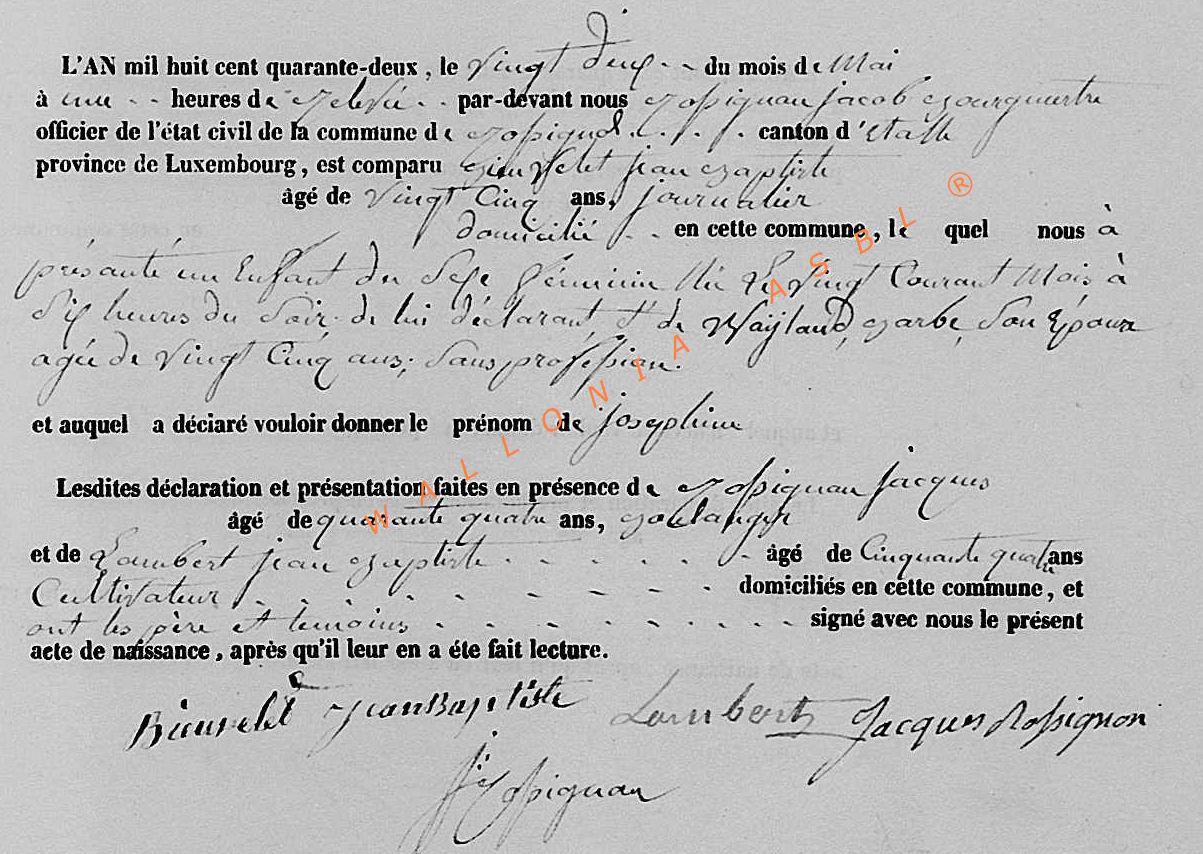 L'AN mil huit cent quarante-deux, le vingt deux du mois de Mai
à une heures de relevée par-devant nous Rossignon jacob Bourgmestre
officier de l'état civil de la commune de Rossignol canton d'Etalle
province de Luxembourg, est comparu Bieuvelet jean Baptiste
âgé de vingt Cinq ans, journalier
domicilié en cette commune, le quel nous à
présanté un Enfant du Sexe féminin Née Le vingt Courant Mois à
Six heures du Soir de lui déclarant, et de Wayland, Barbe, Son Epouse
agée de vingt Cinq ans, Sans profession.
et auquel a déclaré vouloir donner le prénom de josephine
Lesdites déclaration et présentation faites en présence de Rossignon jacques
âgé de quarante quatre ans, Boulanger
et de Lambert jean Baptiste âgé de Cinquante quatre ans
Cultivateur domiciliés en cette commune, et
ont les père et temoins signé avec nous le présent
acte de naissance, après qu'il leur en a éte fait lecture.
Bieuvelet jean Baptiste Lambert Jacques Rossignon
J. Rossignon
WALLONIA ASBL ®